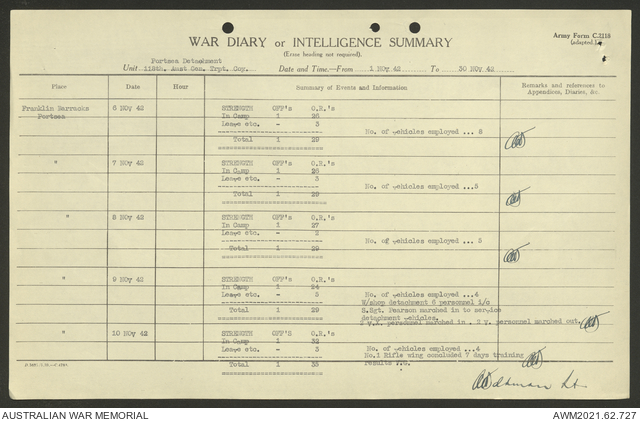 Army Form C.2118
(adapted.)
WAR DIARY or INTELLIGENCE SUMMARY
(Erase heading not required).
Portsea Detachment
Unit 118th. Aust Gen. Trpt. Coy. Date and Time.—From 1 NOV 42 To 30 NOV 42
Place Date Hour Summary of Events and Information Remarks and references to Appendices, Diaries, &c.
Franklin Barracks 6 NOV 42 STRENGTH OFF's O.R's
Portsea In Camp 1 26
Leave etc. - 3
No. of vehicles employed ... 8
Total 1 29
" 7 NOV 42 STRENGTH OFF's O.R's
In Camp 1 26
Leave etc. - 3
No. of vehicles employed ...5
Total 1 29
" 8 NOV 42 STRENGTH OFF's O.R's
In Camp 1 27
Leave etc. - 2
No. of vehicles employed ... 5
Total 1 29
" 9 NOV 42 STRENGTH OFF's O.R's
In Camp 1 24
Leave etc. - 5 No. of vehicles employed ...4
W/shop detachment 6 personnel i/c
Total 1 29 S.Sgt. Pearson marched in to service
detachment vehicles.
personnel marched in . 2 V. personnel marched out.
" 10 NOV 42 STRENGTH OFF'S O.R's
In Camp 1 32
Leave etc. - 3 No. of vehicles employed ...4
No.1 Rifle wing concluded 7 days training
Total 1 35 results
Lt.
AUSTRALIAN WAR MEMORIAL AWM2021.62.727